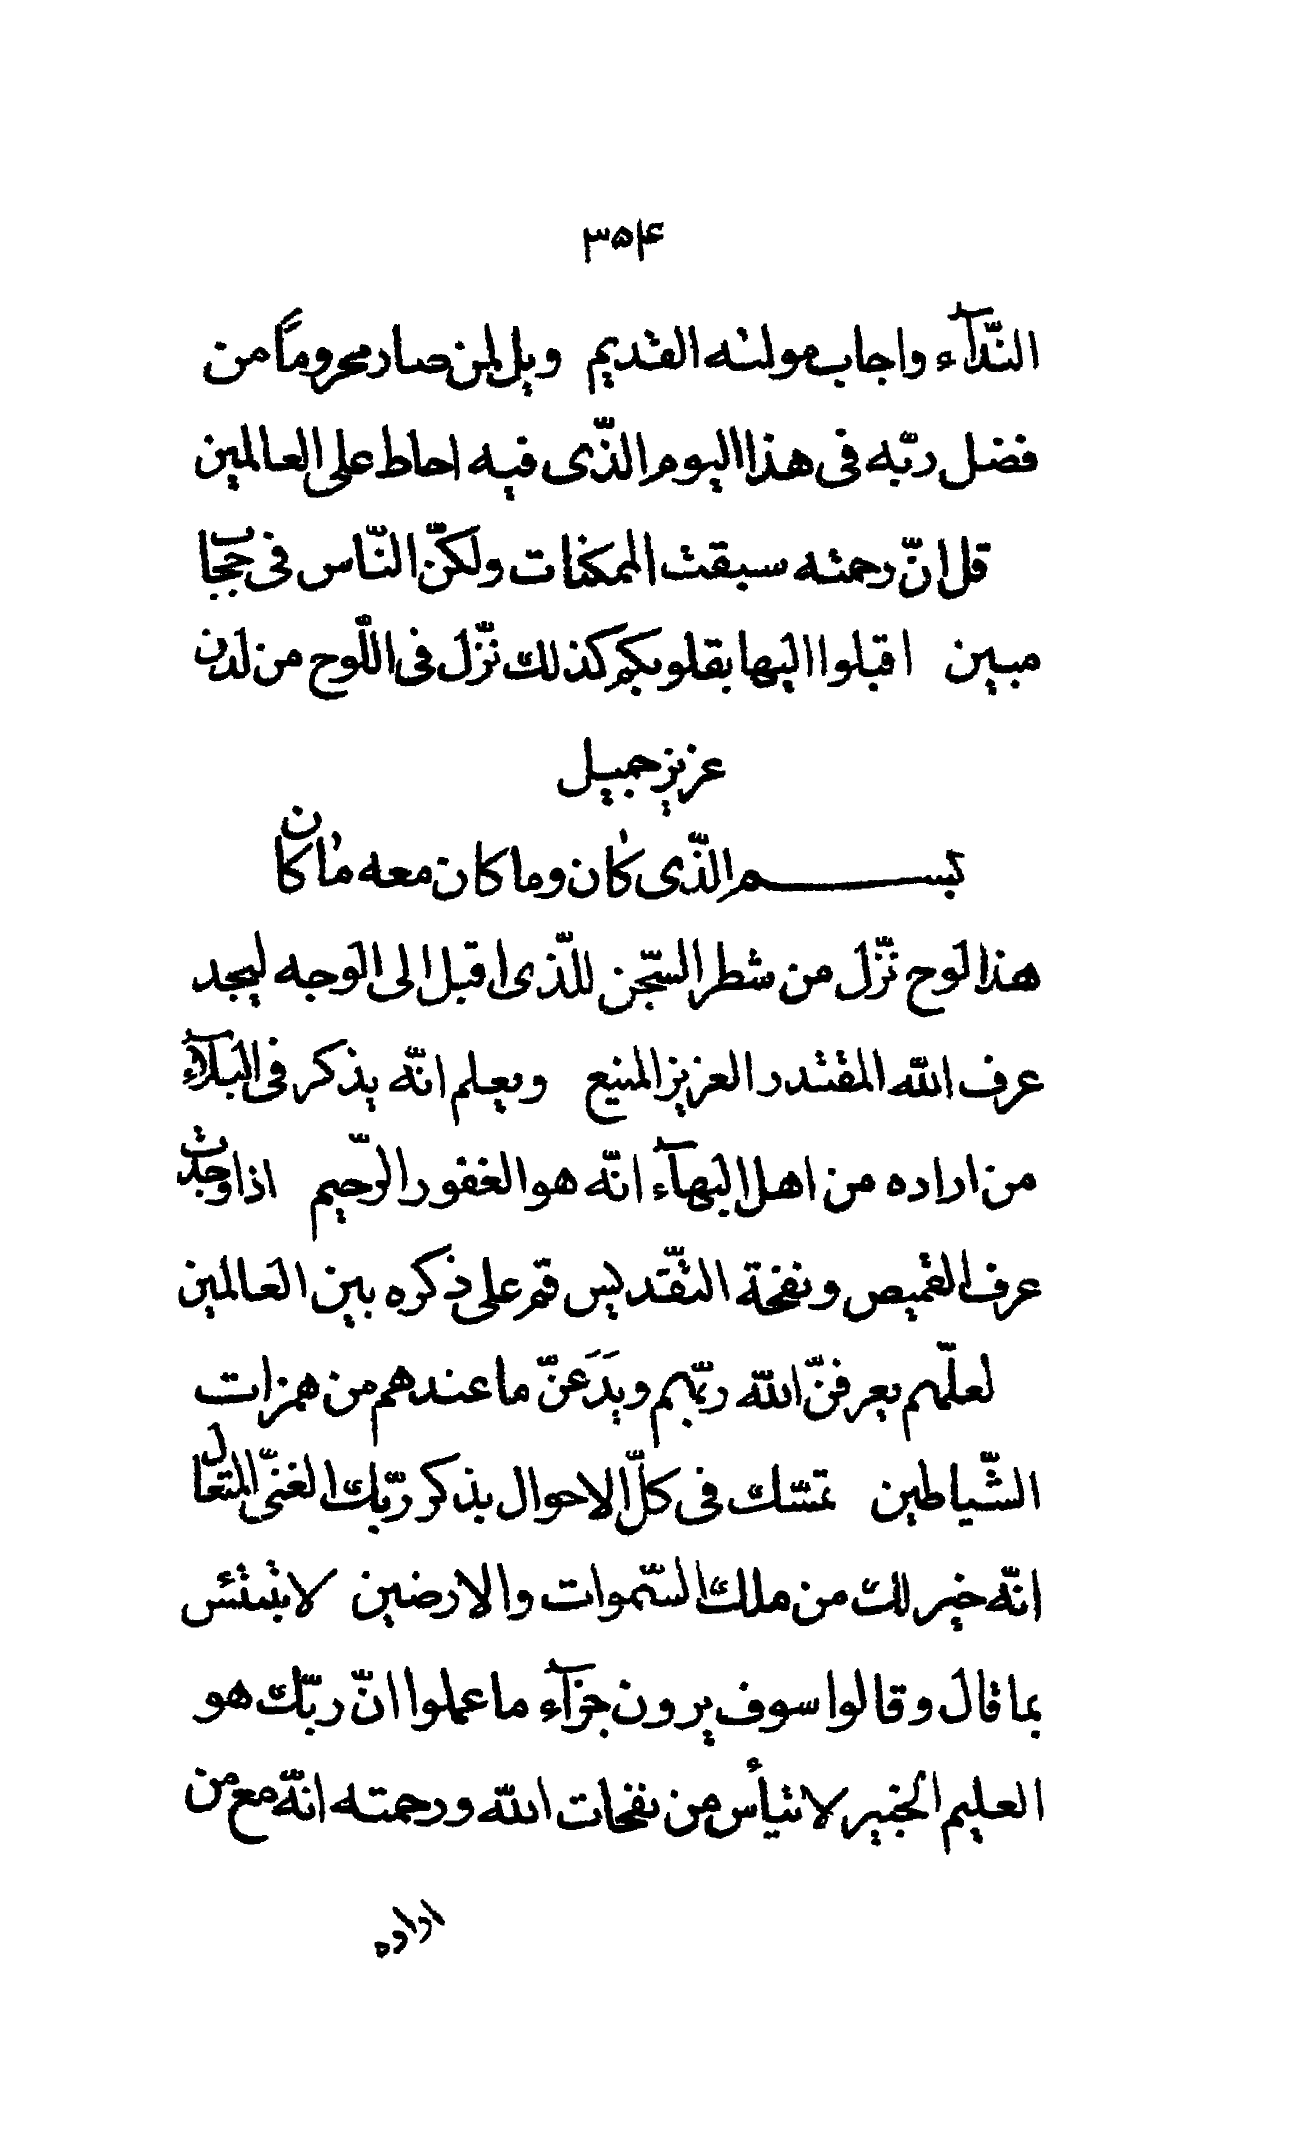 ۳۵۴
النّدآء واجاب مولىٰه القديم ويل لمن صار محروماً من
فضل ربّه فى هذا اليوم الّذى فيه احاط على العالمين
قل انّ رحمته سبقت الممكنات ولكنّ النّاس فى حجاب
مبين اقبلوا اليها بقلوبكم كذلك نزّل فى اللّوح من لدن
عزيز جميل
بسم الّذى كان وما كان معه ما كان
هذا لوح نزّل من شطر السّجن للّذى اقبل الى الوجه ليجد
عرف الله المقتدر العزيز المنيع ويعلم انّه يذكر فى البلآء
من اراده من اهل البهآء انّه هو الغفور الرّحيم اذا وجدت
عرف القميص ونفحة التّقديس قم على ذكره بين العالمين
لعلّهم يعرفنّ الله ربّهم ويَدَعَنّ ما عندهم من همزات
الشّياطين تمسّك فى كلّ الاحوال بذكر ربّك الغنىّ المتعال
انّه خير لك من ملك السّموات والارضين لا تبتئس
بما قال وقالوا سوف يرون جزآء ما عملوا انّ ربّك هو
العليم الخبير لا تيأس من نفحات الله ورحمته انّه مع من
اراده